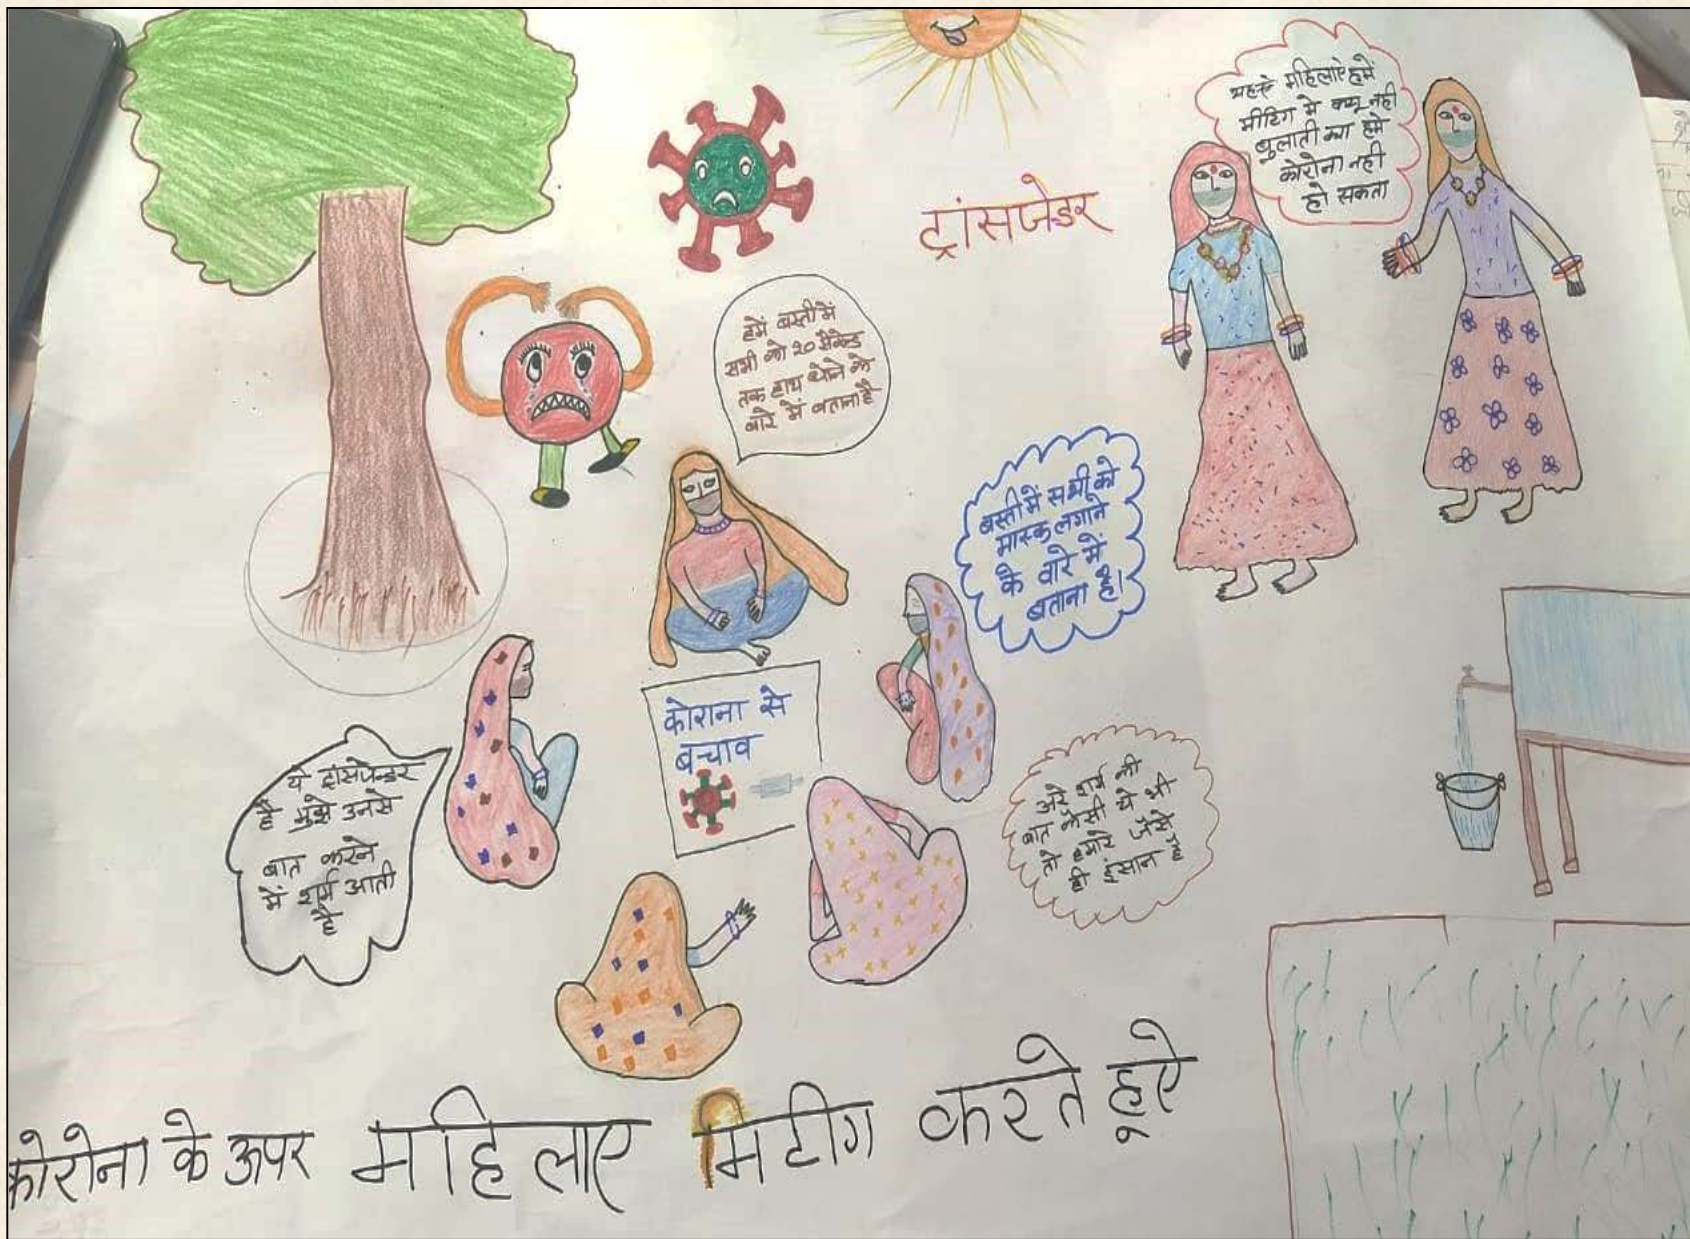 ट्रांसजेन्डर
महिलाऐ हमें
मीटिंग मे क्यू नही
बुलाती क्या हमे
कोरोना नही
हो सकता
हमें बस्ती में
सभी को 20 सैकेन्ड
तक हाथ धोने के
बारे में बताना है
बस्ती में सभी को
मास्क लगाने
के बारे में
बताना है।
कोराना से
बचाव
ये ट्रांसजेन्डर
है मुझे उनसे
बात करने
में शर्म आती
है
अरे शर्म की
बात केसी ये भी
तो हमारे जैसे
ही इंसान है
कोरोना के ऊपर महिलाए मिटीग करते हूऐ